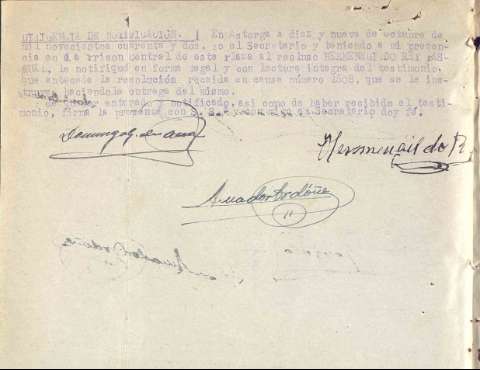 DILIGENCIA DE NOTIFICACION. | En Astorga a diez y nueve de octubre de
mil novecientos cuarenta y dos. yo el Secretario y teniendo a mi presen-
cia en la prison central de esta plaza al recluso HERMENEGILDO REY
le notifiqué en forma legal y con lectura íntegra del testimonio,
que antecede la resolución recaida en causa número 1508, que se le ins-
truyó haciendole entrega del mismo.
y enterado y notificado, así como de haber recibido el testi-
monio, firma la presente con S.S. de que yo el Secretario doy fé.
Hermenegildo R
Amador Ordóñez